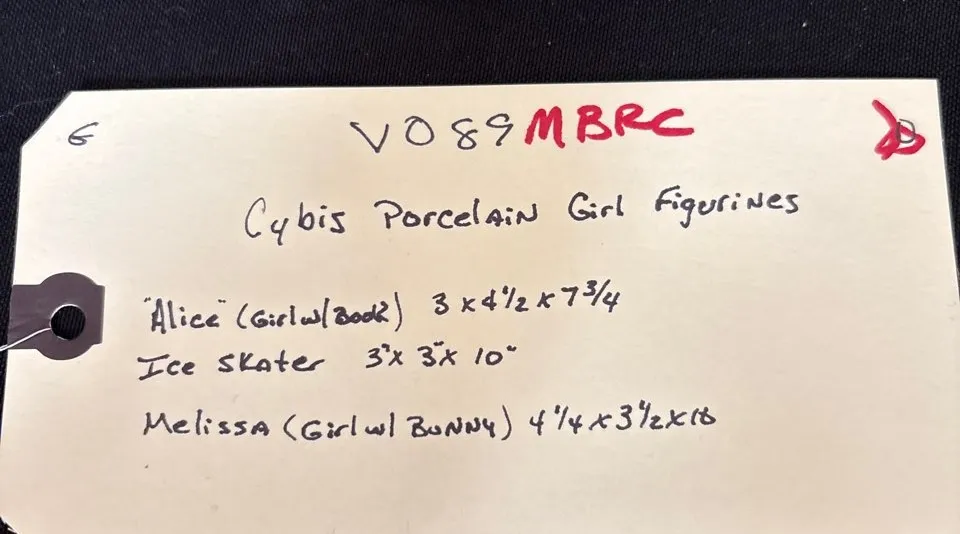 G VO89 MBRC
Cybis Porcelain Girl Figurines
"Alice" (Girl w/ Book) 3 x 4 1/2 x 7 3/4
Ice Skater 3" x 3" x 10"
Melissa (Girl w/ Bunny) 4 1/4 x 3 1/2 x 10